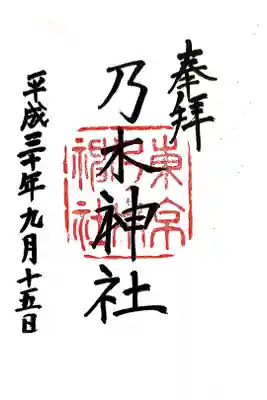 奉拝
乃木神社
東京乃木神社
平成三十年九月十五日